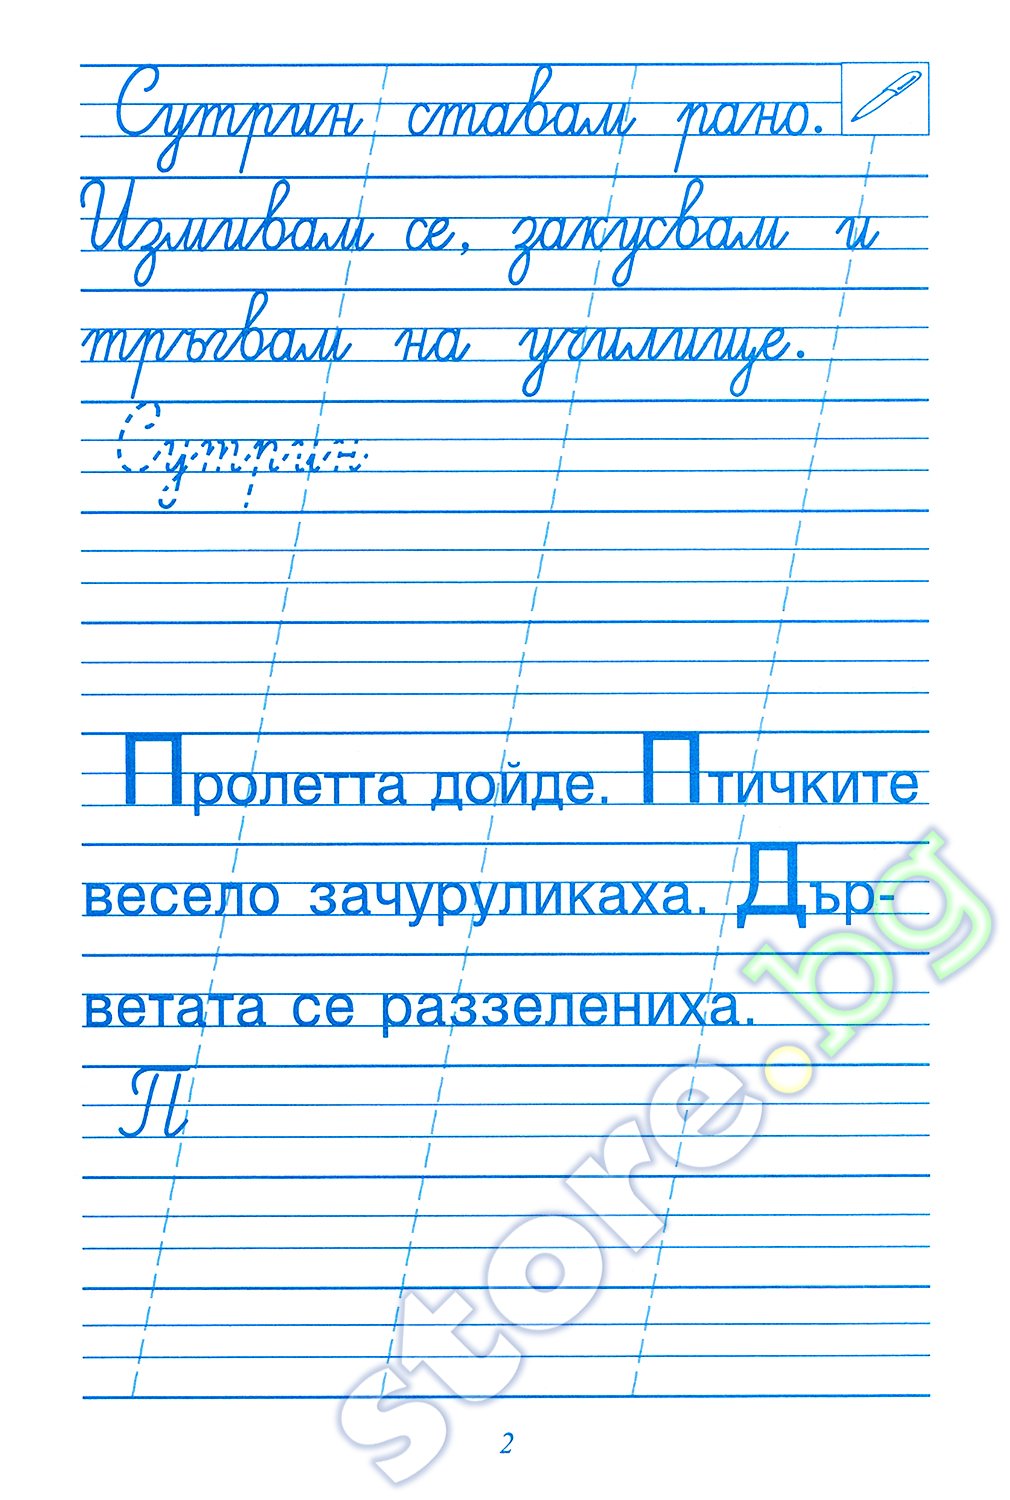 Сутрин ставам рано.
Измивам се, закусвам и
тръгвам на училище.
Сутрин
Пролетта дойде. Птичките
весело зачуруликаха. Дър-
ветата се раззелениха.
П
store.bg
2